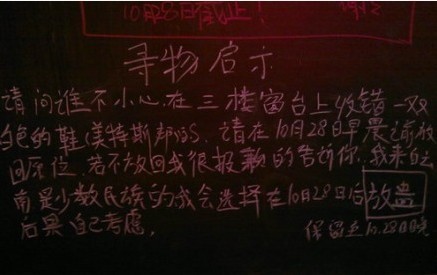 10月28日截止!
寻物启示
请问谁不小心在三楼窗台上收错一双
白色的鞋(美特斯邦威). 请在10月28日早晨之前放
回原位. 若不放回我很报歉的告诉你,我来自云
南是少数民族的我会选择在10月28日后放蛊
后果自己考虑.
保留至10.28日晚